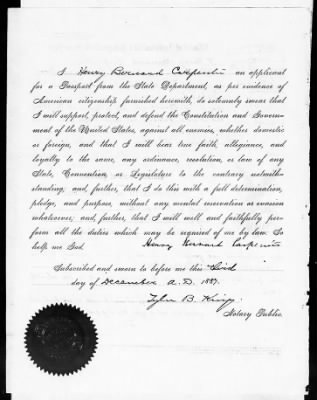 I Henry Bernard Carpenter an applicant
for a Passport from the State Department, as per evidence of
American citizenship furnished herewith, do solemnly swear that
I will support, protect, and defend the Constitution and Govern-
ment of the United States, against all enemies, whether domestic
or foreign, and that I will bear true faith, allegiance, and
loyalty to the same, any ordinance, resolution, or law of any
State, Convention, or Legislature to the contrary notwith-
standing; and, further, that I do this with a full determination,
pledge, and purpose, without any mental reservation or evasion
whatsoever; and, further, that I will well and faithfully per-
form all the duties which may be required of me by law. So
help me God. Henry Bernard Carpenter
Subscribed and sworn to before me this
day of December A. D. 1887.
B.
Notary Public.